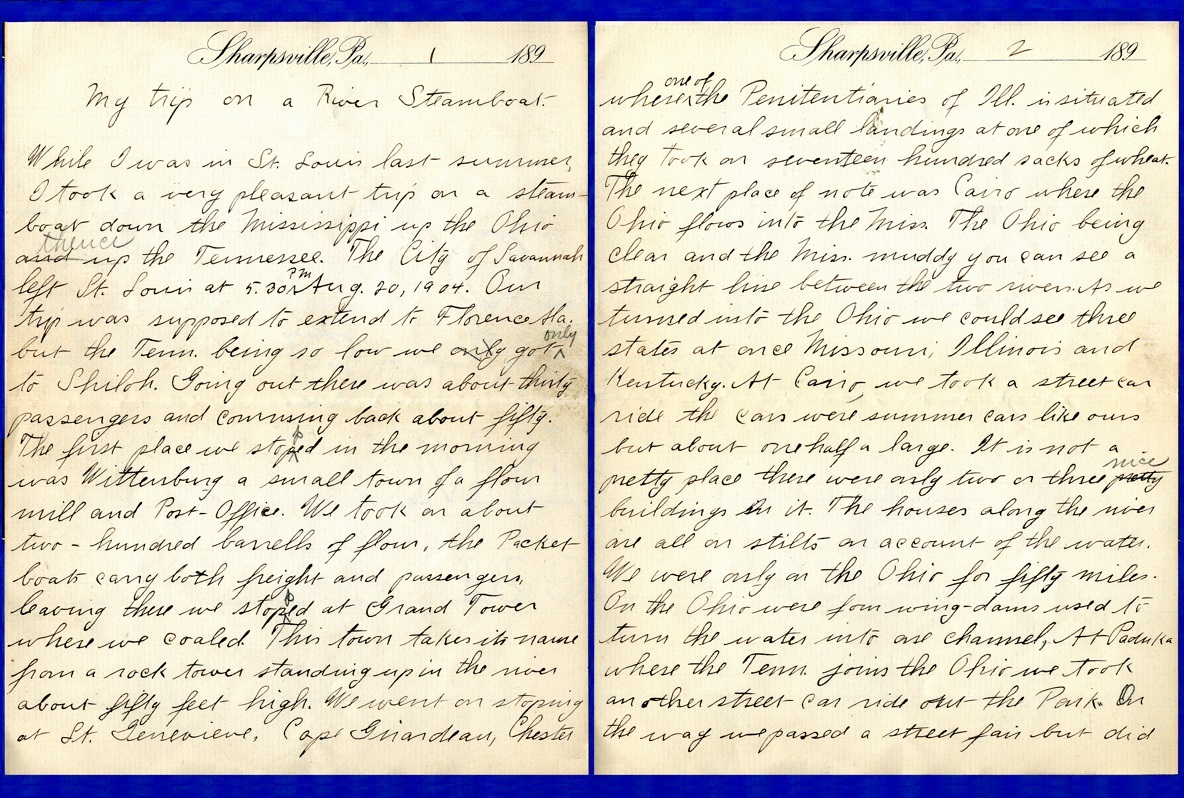 Sharpsville, Pa., 1 189
My trip on a River Steamboat.
While I was in St. Louis last summer,
I took a very pleasant trip on a steam-
boat down the Mississippi up the Ohio
thence
and up the Tennessee. The City of Savannah
left St. Louis at 5.30 P.M. Aug. 20, 1904. Our
trip was supposed to extend to Florence Ala.
but the Tenn. being so low we only got only
to Shiloh. Going out there was about thirty
passengers and comming back about fifty.
The first place we stopped in the morning
was Wittenburg a small town of a flour
mill and Post-Office. We took on about
two-hundred barrells of flour, the Packet
boats carry both freight and passengers,
leaving there we stopped at Grand Tower
where we coaled. This town takes its name
from a rock tower standing up in the river
about fifty feet high. We went on stoping
at St. Genevieve, Cape Girardeau, Chester
Sharpsville, Pa., 2 189
where one of the Penitentiaries of Ill. is situated
and several small landings at one of which
they took on seventeen hundred sacks of wheat.
The next place of note was Cairo where the
Ohio flows into the Miss. The Ohio being
clear and the Miss. muddy you can see a
straight line between the two rivers. As we
turned into the Ohio we could see three
states at once Missouri, Illinois and
Kentucky. At Cairo, we took a street car
ride the cars were summer cars like ours
but about one half a large. It is not a
pretty place there were only two or three pretty nice
buildings in it. The houses along the river
are all on stilts on account of the water.
We were only on the Ohio for fifty miles.
On the Ohio were four wing-dams used to
turn the water into one channel, At Paduka
where the Tenn. joins the Ohio we took
another street car ride out the Park. On
the way we passed a street fair but did